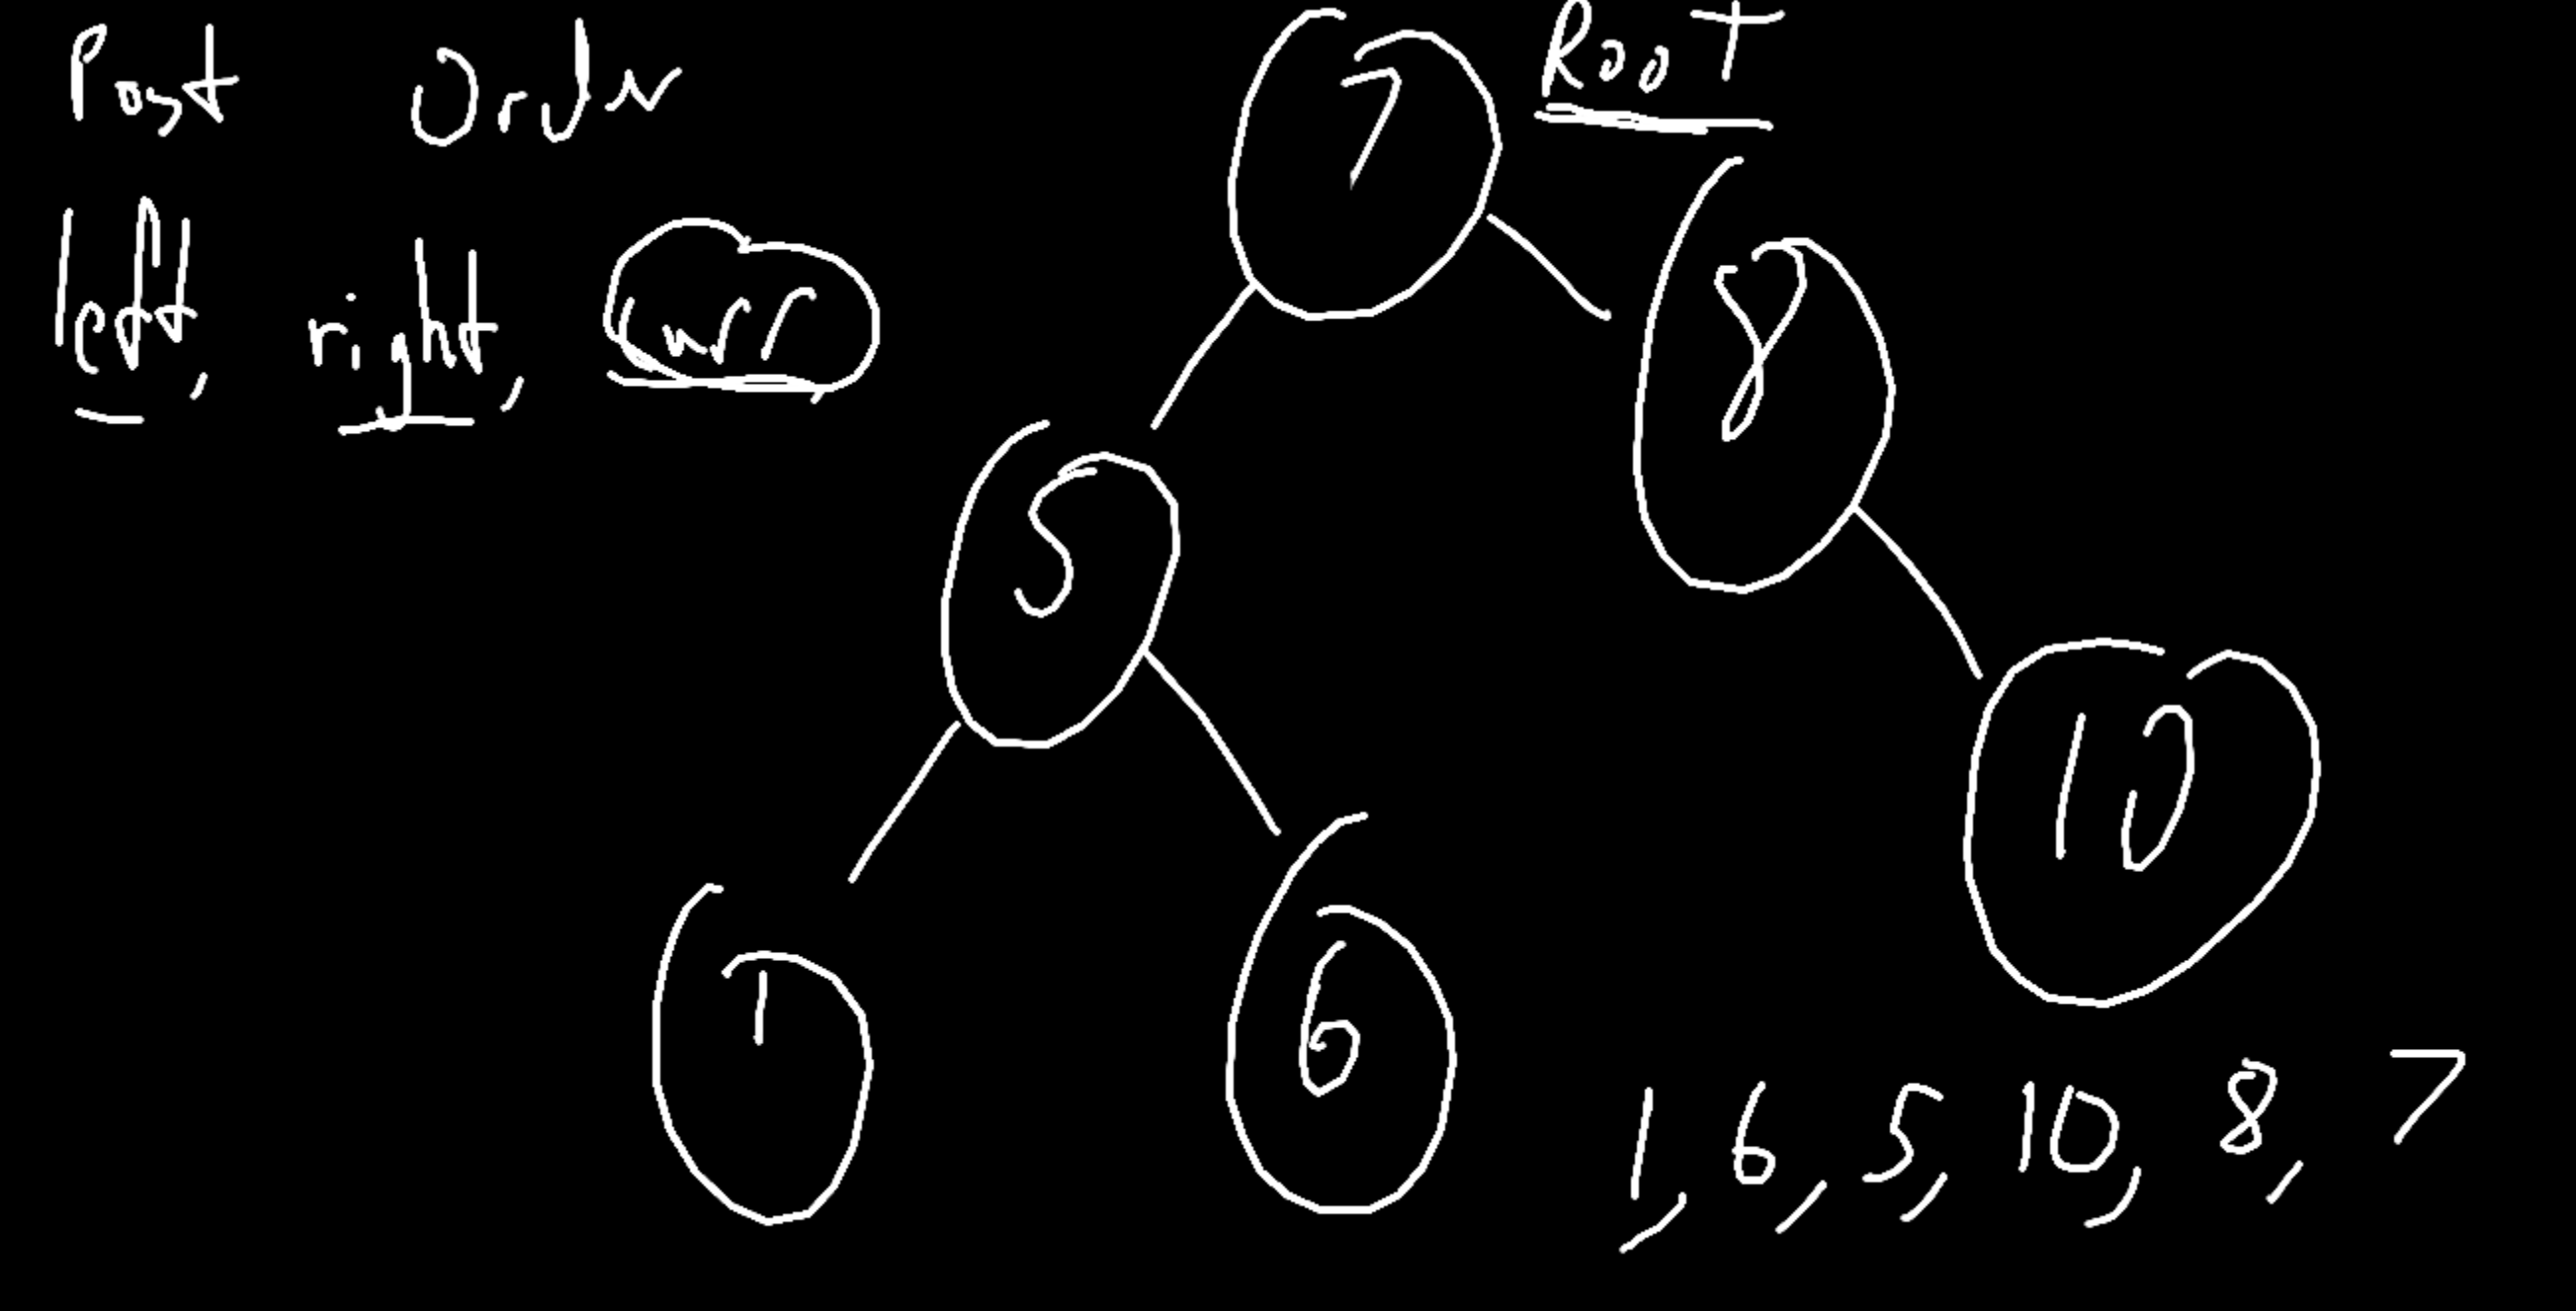 Post Order
left, right, curr
Root
7
8
5
10
1
6
1, 6, 5, 10, 8, 7